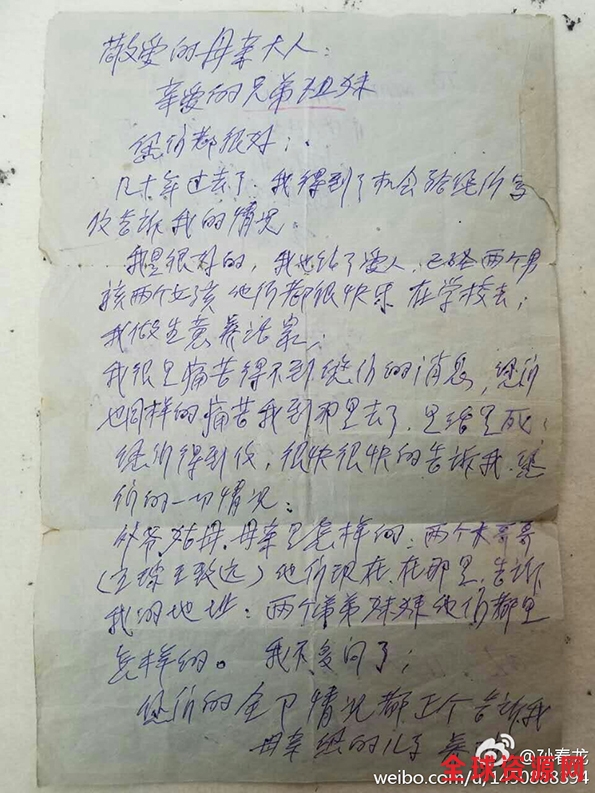 敬爱的母亲大人：
亲爱的兄弟姐妹
您们都很好；
几十年过去了，我得到了机会给您们写
信告诉我的情况。
我是很好的，我也结了爱人，已经两个男
孩两个女孩 他们都很快乐 在学校去；
我做生意养活家；
我很是痛苦得不到您们的消息，您们
也同样的痛苦我到那里去了，是活是死；
您们得到信，很快很快的告诉我，您
们的一切情况：
外爷姑母、母亲是怎样的，两个大哥哥
（王琮王致远）他们现在，在那里，告诉
我的地址：两个弟弟妹妹他们都是
怎样的。 我不多问了；
您们的全 情况都 个告诉我
母亲 的儿子
@孙春龙
全球资源网